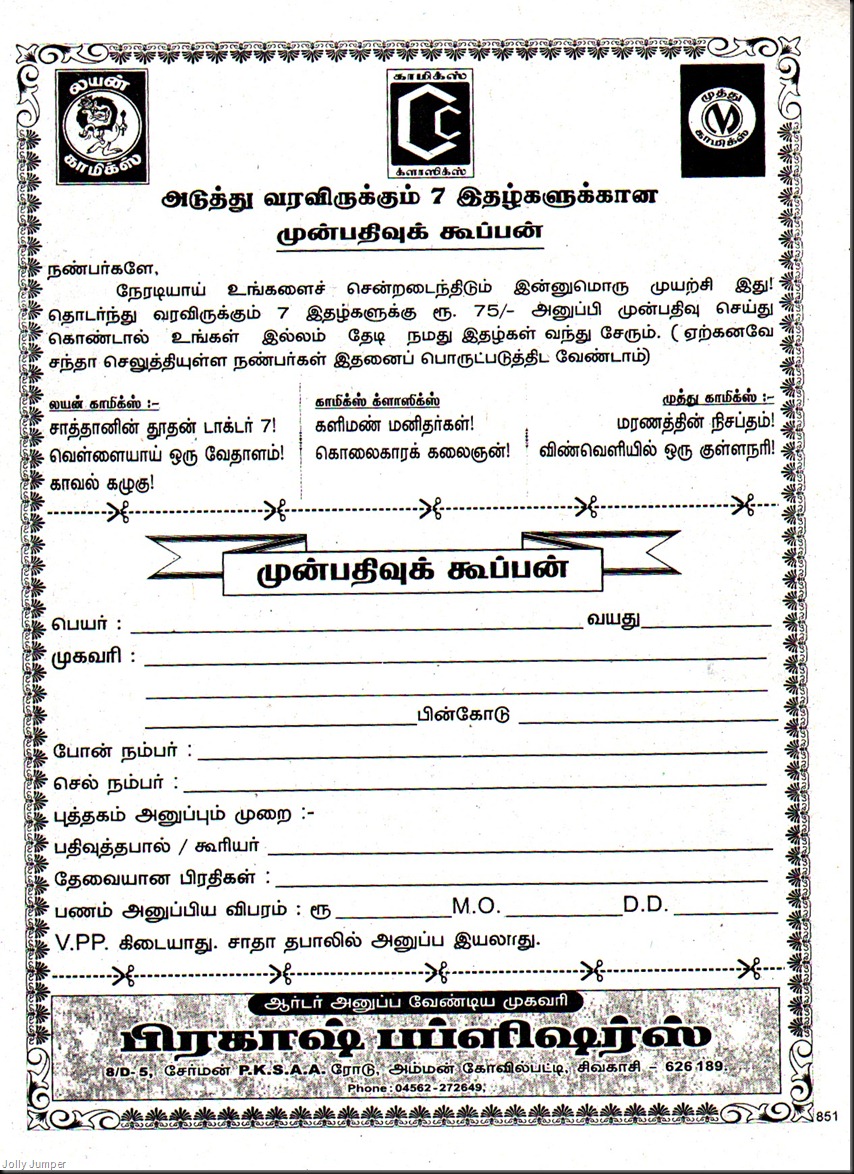 லயன்
காமிக்ஸ்
காமிக்ஸ்
CC
க்ளாஸிக்ஸ்
முத்து
M
காமிக்ஸ்
அடுத்து வரவிருக்கும் 7 இதழ்களுக்கான
முன்பதிவுக் கூப்பன்
நண்பர்களே,
நேரடியாய் உங்களைச் சென்றடைந்திடும் இன்னுமொரு முயற்சி இது!
தொடர்ந்து வரவிருக்கும் 7 இதழ்களுக்கு ரூ. 75/- அனுப்பி முன்பதிவு செய்து
கொண்டால் உங்கள் இல்லம் தேடி நமது இதழ்கள் வந்து சேரும். ( ஏற்கனவே
சந்தா செலுத்தியுள்ள நண்பர்கள் இதனைப் பொருட்படுத்திட வேண்டாம்)
லயன் காமிக்ஸ் :-
சாத்தானின் தூதன் டாக்டர் 7!
வெள்ளையாய் ஒரு வேதாளம்!
காவல் கழுகு!
காமிக்ஸ் க்ளாஸிக்ஸ்
களிமண் மனிதர்கள்!
கொலைகாரக் கலைஞன்!
முத்து காமிக்ஸ் :-
மரணத்தின் நிசப்தம்!
விண்வெளியில் ஒரு குள்ளநரி!
முன்பதிவுக் கூப்பன்
பெயர் : வயது
முகவரி :
பின்கோடு
போன் நம்பர் :
செல் நம்பர் :
புத்தகம் அனுப்பும் முறை :-
பதிவுத்தபால் / கூரியர்
தேவையான பிரதிகள் :
பணம் அனுப்பிய விபரம் : ரூ M.O. D.D.
V.PP. கிடையாது. சாதா தபாலில் அனுப்ப இயலாது.
ஆர்டர் அனுப்ப வேண்டிய முகவரி
பிரகாஷ் பப்ளிஷர்ஸ்
8/D-5, சேர்மன் P.K.S.A.A. ரோடு, அம்மன் கோவில்பட்டி, சிவகாசி - 626 189.
Phone : 04562-272649.
851
Jolly Jumper